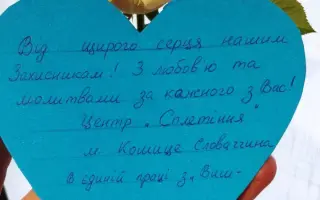 Від щирого серця нашим
Захисникам! З любов'ю та
молитвами за кожного з Вас!
Центр "Сплетіння"
м. Кошице Словаччина
В єдиній праці з